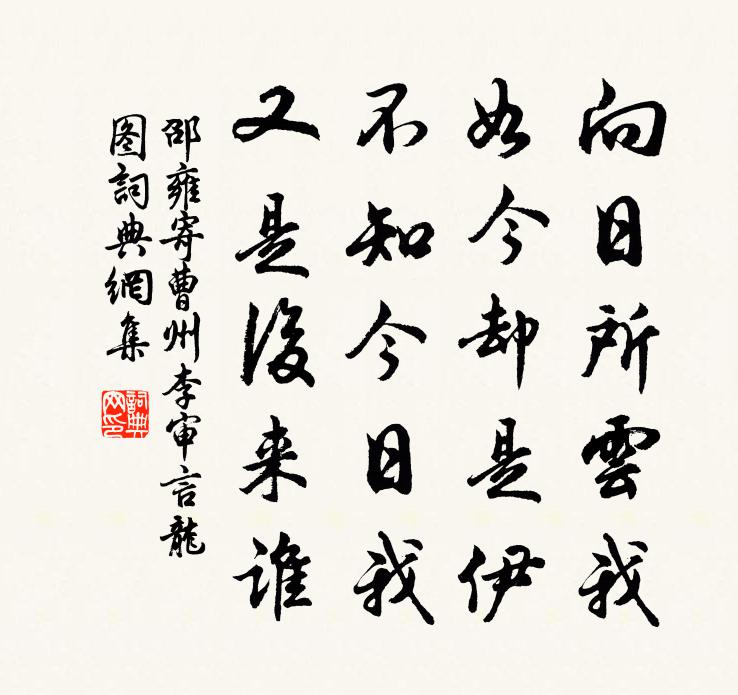 向日所雲我
如今却是伊
不知今日我
又是後来誰
邵雍寄曹州李审言龍
图詞典網集
詞典
网印